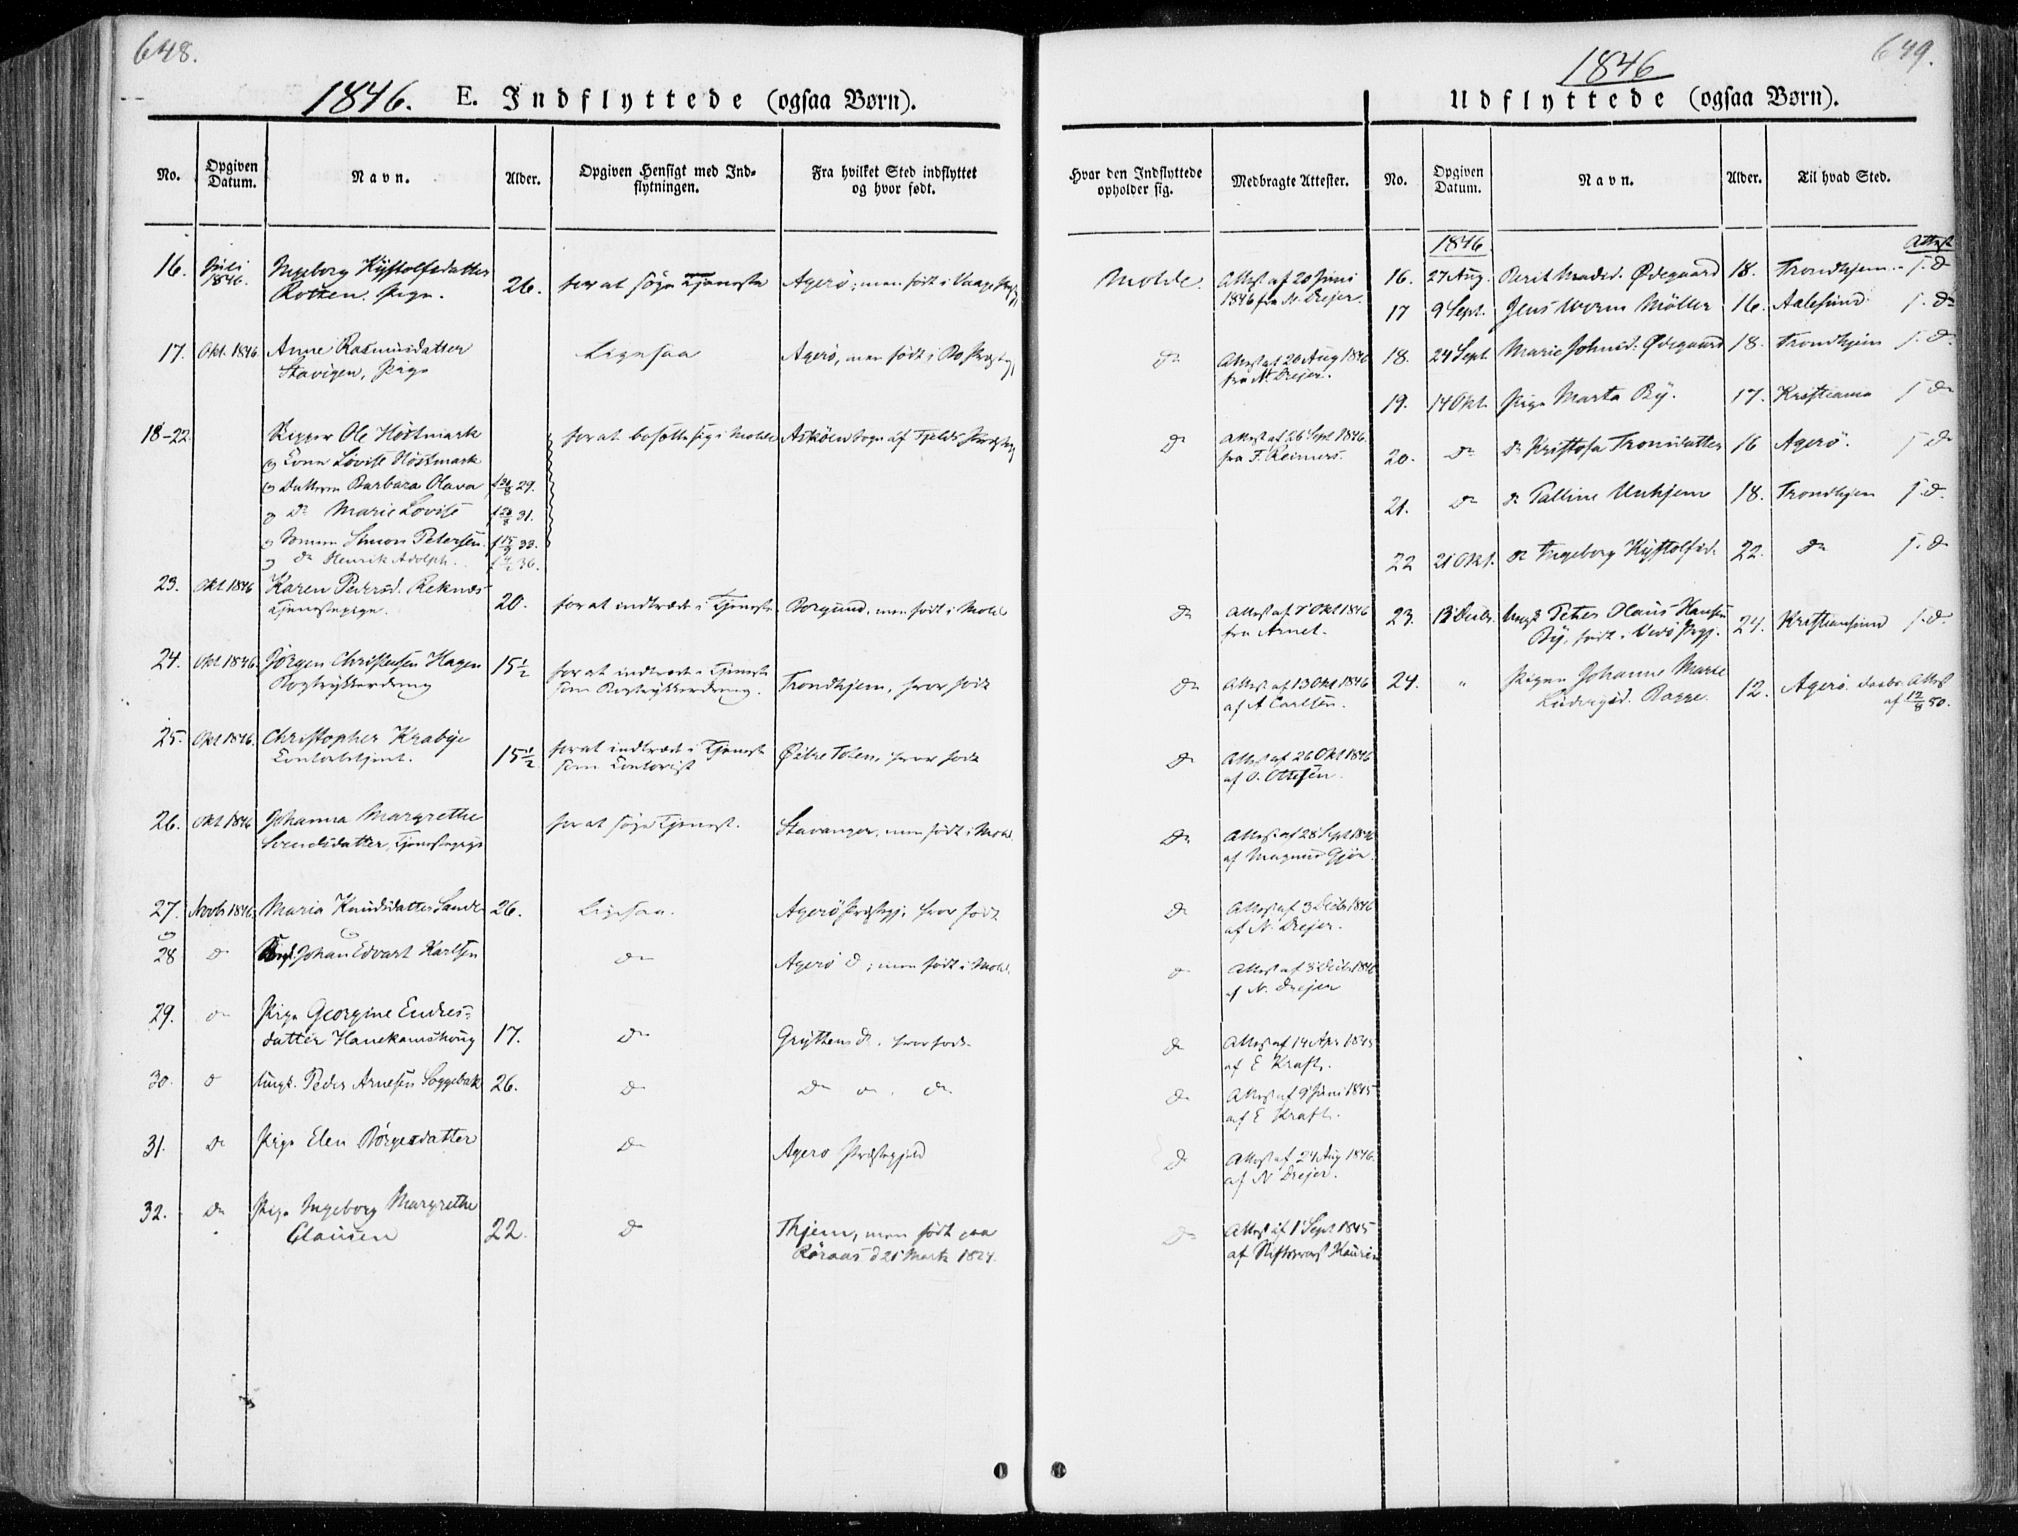 648.
1846. E. Indflyttede (ogsaa Børn).
No.
Opgiven Datum.
Navn.
Alder.
Opgiven Hensigt med Indflytningen.
Fra hvilket Sted indflyttet og hvor født.
16. Juli 1846. Ingeborg Kystolfsdatter 26. for at søge Tjeneste Agerø; men født i
Pige.
17. Okt. 1846 Anne Rasmusdatter Ligesaa Agerø, men født i Bo
Stavigen, Pige
18-22. Skipper Ole Høstmark for at bosætte sig i Molde Askøen Sogn af
og Kone Lovise Høstmark
og Datteren Barbara Olava 29.
og Do Marie Lovise 31.
og Sønnen Simon Petersen
og do Henrik Adolph.
23. Okt 1846 Karen Pedersd. Reknes 20. for at indtræde i Tjeneste Borgund, men født i Molde
Tjenestepige.
24. Okt 1846. Jørgen Christensen Hagen 15½ for at indtræde i Tjeneste Trondhjem, hvor født
Bogtrykkerdreng som Bogtrykkerdreng.
25. Okt 1846. Christopher Krabye 15½ for at indtræde i Tjeneste Østre Toten, hvor født
som Contorist
26. Okt 1846 Johanna Margrethe for at søge Tjenest. Stavanger, men født i Mold.
Svendsdatter, Tjenestepige
27. Novbr 1846. Maria Knudsdatter Sande 26. Ligesaa. Agerø Præstegj. hvor født
og
28 Do Johan Edvart Karlsen Do Agerø Do; men født i Mold.
29. Do Pige Georgine Endres- 17. Do Grytten Do. hvor født
datter Hanekamshoug
30. Do Ungk. Peder Arnesen Soggebak 26. Do Do Do Do
31. Do Pige Elen Børgesdatter Do Agerø Præstegjeld
32. Do Pige Ingeborg Margrethe 22. Do Thjem, men født paa
Clausen Røraas d 21 Marts 1824.
649.
1846
Udflyttede (ogsaa Børn).
Hvor den Indflyttede opholder sig.
Medbragte Attester.
No.
Opgiven Datum.
Navn.
Alder.
Til hvad Sted.
Molde. Attest af 20 Juni
1846 fra N. Drejer.
Do Attest af 20 Aug 1846
fra N. Drejer.
Do Attest af 26 Sept 1846.
fra F. Reimers.
Do Attest af 7 Okt 1846
fra Arnet.
Do Attest af 13 Okt 1846
af A Carlsen.
Do Attest af 26 Okt 1846
af O. Ottesen.
Do Attest af 28 Sept 1846
af Magnus
Do Attest af 3 Decbr 1846
af N. Drejer.
Do Attest af 3 Decbr 1846
af N. Drejer
Do Attest af 14 Apr. 1845
af E Kraft.
Do Attest af 9 Juni 1845
af E Kraft.
Do Attest af 24 Aug 1846.
af N Drejer.
Do Attest af 1 Sept 1845
af Stiftsprovst
1846 Attest
16. 27 Aug. Berit Madsd. Ødegaard 18. Trondhjem. s. D.
17 9 Sept. Jens Worm Møller 16. Aalesund. s. D.
18. 24 Sept. Marie Johnsd. Ødegaard 18. Trondhjem s. D.
19. 14 Okt. Pige Marta By. 17. Kristiania s. D.
20. Do Do Kristofa Tronsdatter 16 Agerø. s. D.
21. Do Do Palline Unhjem 18. Trondhjem s. D.
22 21 Okt. Do Ingeborg Kystolfsd. 22. Do s. D.
23. Decbr. Ungk Peter Olaus Hansen 24. Kristiansund s. D.
By, født i Vedø Prgj.
24. " Pigen Johanne Marie 12. Agerø. Attest
Ludvigsd. Bagge. af 12/8 50.